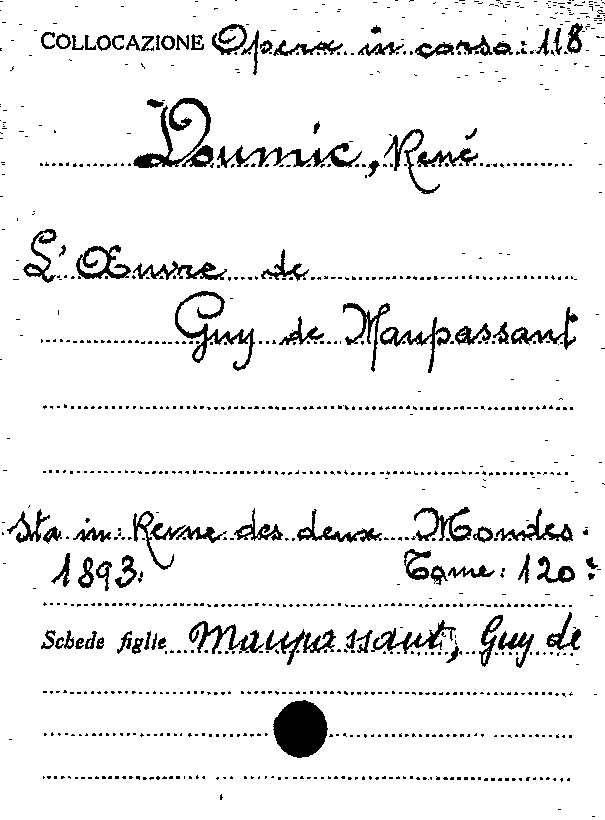 COLLOCAZIONE Opera in corso: 118
Doumic, René
L'Œuvre de
Guy de Maupassant
Sta in: Revue des deux Mondes.
1893. Tome: 120º
Schede figlie Maupassant, Guy de